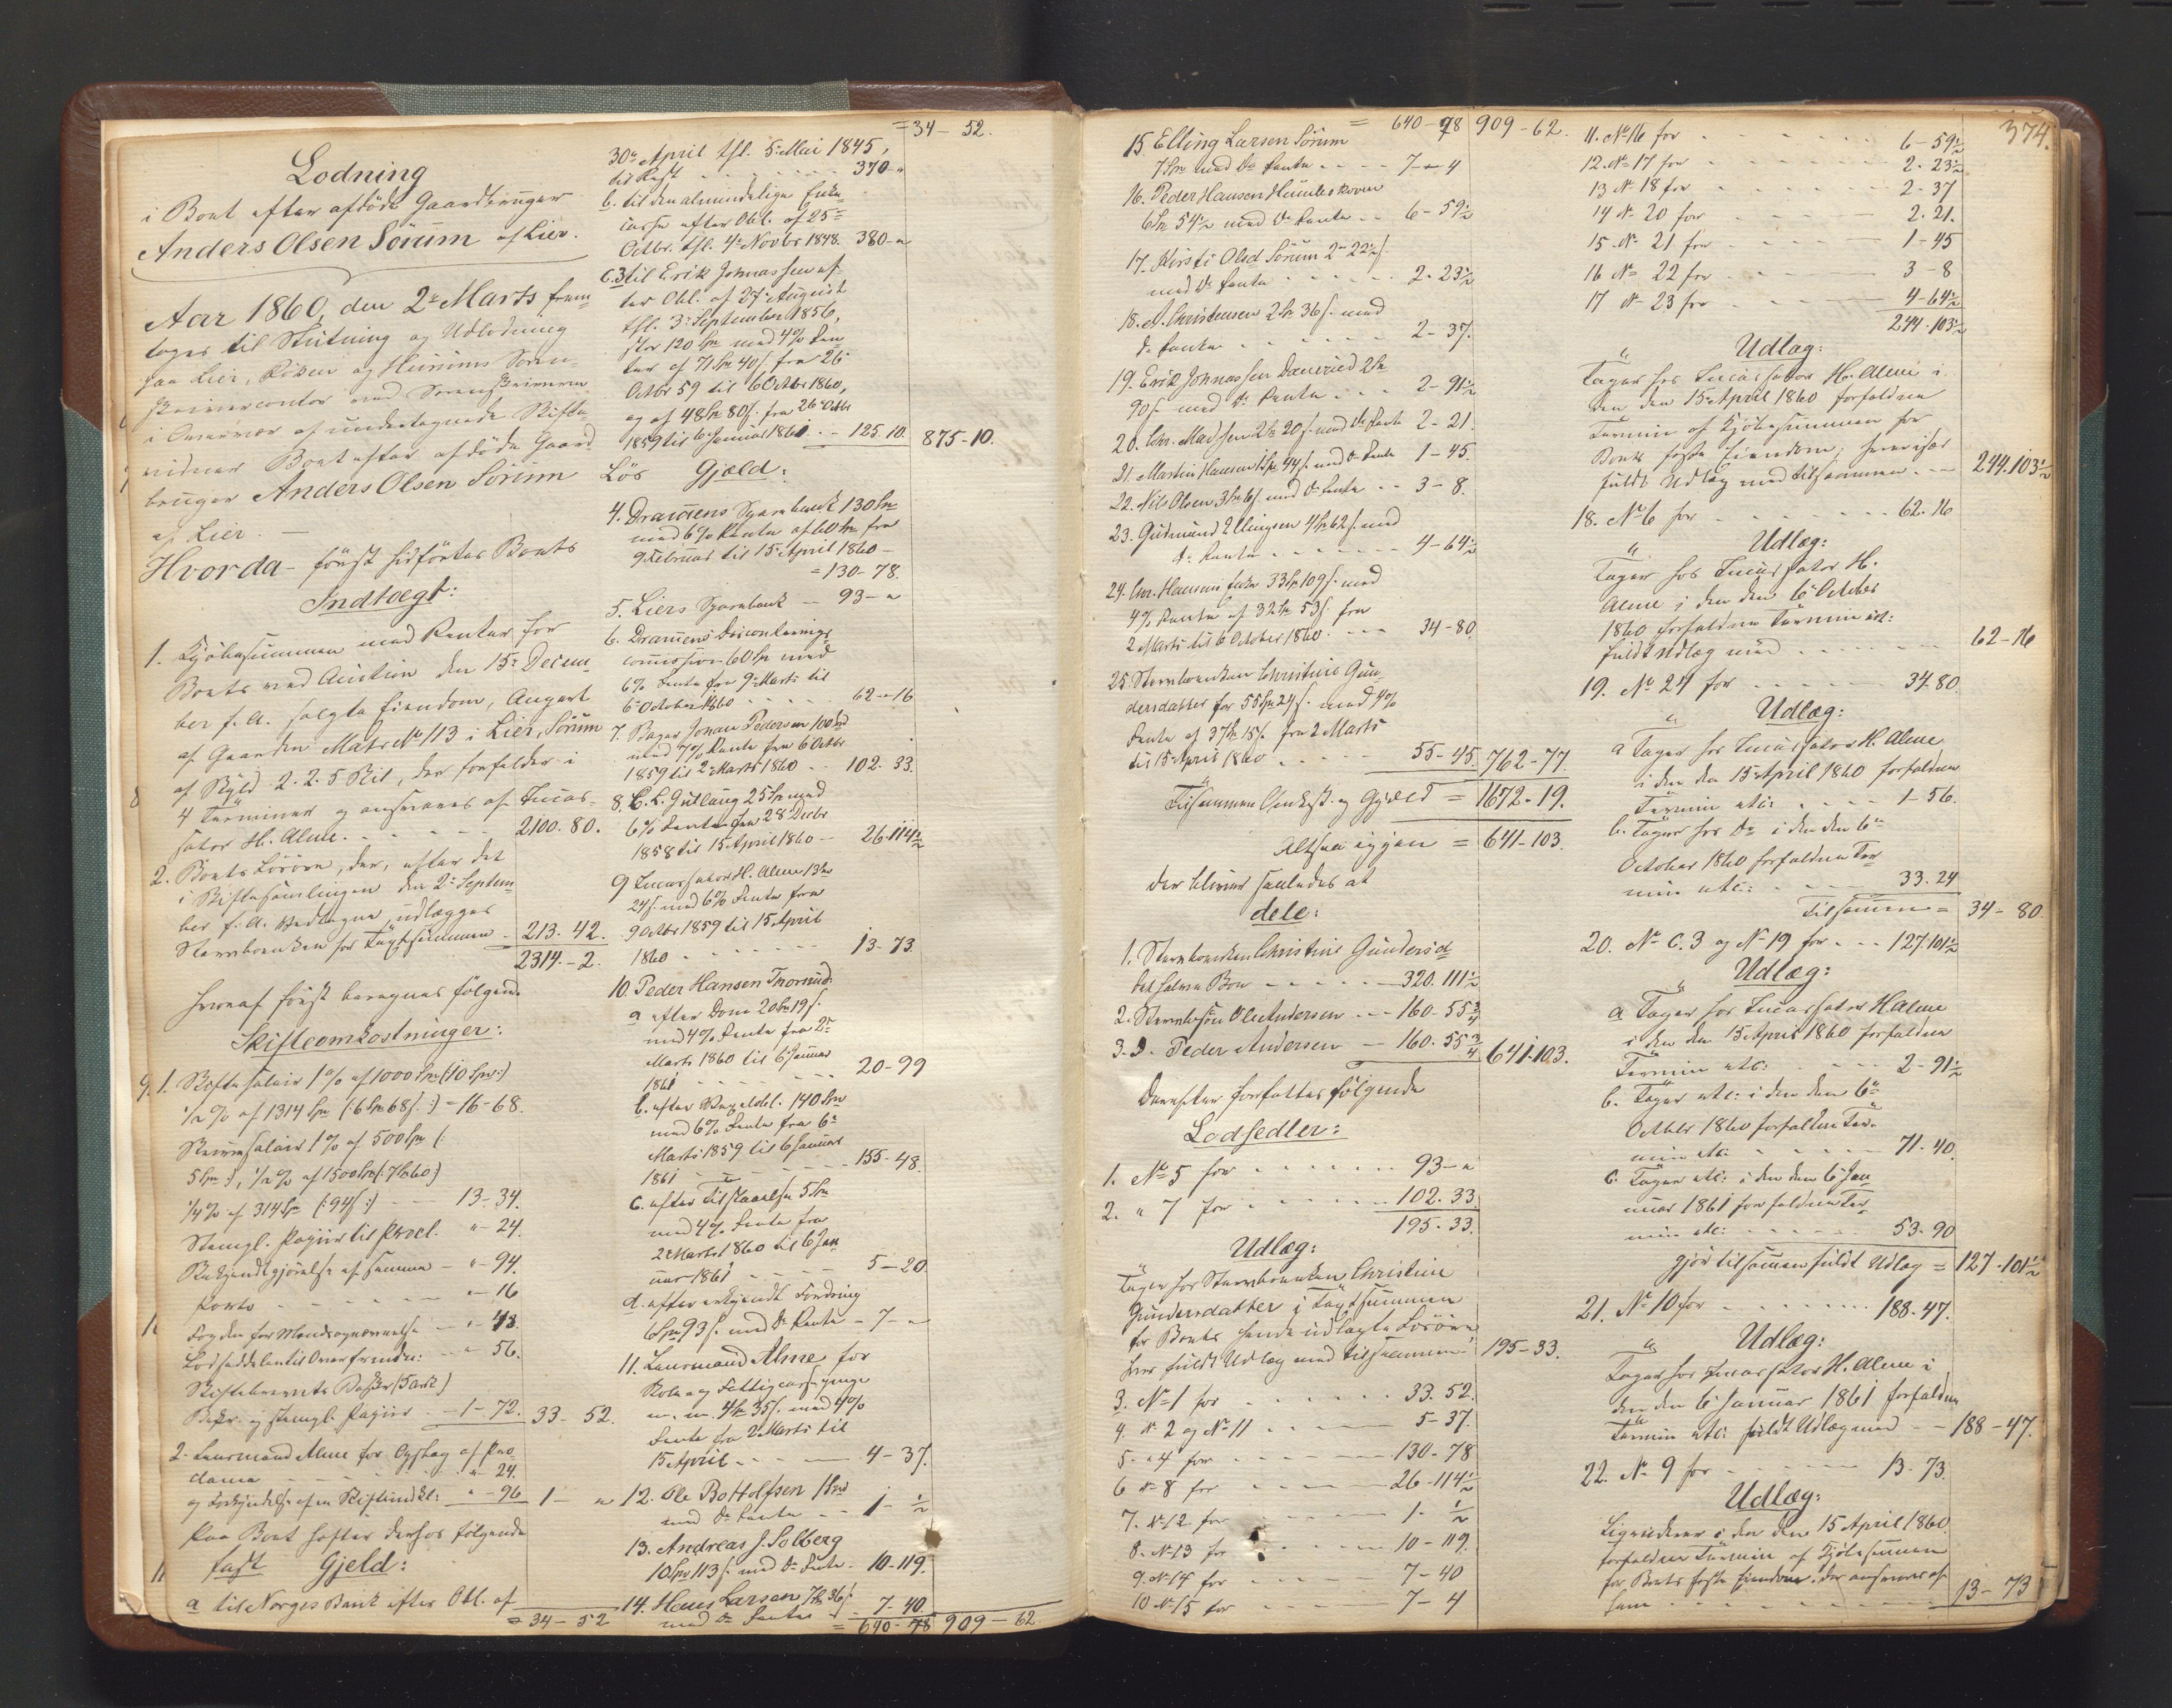 Lodning
i Boet efter afdöde Gaardbruger
Anders Olsen Sörum af Lier.
Aar 1860, den 2den Marts frem-
toges til Slutning og Udlodning
paa Lier, Röken og Hurums Soren-
skrivercontor ved Sorenskriveren
i Overvær af undertegnede Skifte-
vidner Boet efter afdöde Gaard-
bruger Anders Olsen Sörum
af Lier. —
Hvorda - först hidförtes Boets
Indtægt:
1. Kjöbesummen med Renter for
Boets ved Auction den 15de Decem-
ber f. A. solgte Eiendom, Angart
af Gaarden Matr No 113 i Lier, Sörum
af Skyld 2. 2. 5 Skil, der forfalder i
4 Terminer og ansvares af Incas-
sator H. Alme. 2100. 80.
2. Boets Lösöre, der, efter det
i Skiftesamlingen den 2den Septem-
ber f. A. Vedtagne, udlægges
Stervboenken for Taxtsummen - 213. 42.
2314. - 2.
hvoraf först beregnes fölgende
Skifteomkostninger:
1. Skiftesalair 1 % af 1000 Spd (: 10 Spd :)
1/2 % af 1314 Spd (: 6 Spd 68 s. :) = 16-68.
Skriversalair 1 % af 500 Spd (:
5 Spd :), 1/2 % af 1500 Spd (: 7 Spd 60 :)
1/4 % af 314 Spd (: 94 s. :) 13-34.
Stempl. Papiir til Procl. " - 24.
Bekjendtgjörelse af samme - " - 94.
Porto " - 16
Fogden for Mandsopnævnelse - " - 48.
Lodseddelen til Overformdr: " - 56.
Skiftebrevets Beskr (5 Ark)
Bekr. og stempl. Papiir - 1 - 72. 33 - 52.
2. Lensmand Alme for Opslag af Pro-
clama " - 24.
og Forkyndelse af en Skifteindkl: " - 96 1 - "
Paa Boet hefter derhos fölgende
fast Gjeld:
a til Norges Bank efter Obl. af
= 34 - 52
= 34 - 52.
30te April thl. 5te Mai 1845,
til Rest 370 - "
b. til den almindelige Enke-
casse efter Obl. af 25de
Octbr. thl. 4de Novbr 1848. 380 - "
c. 3 til Erik Johnassen ef-
ter Obl. af 27de August
thl. 3de September 1856,
stor 120 Spd med 4% Ren-
ter af 71 Spd 40 s. fra 26de
Octbr 59 til 6 Octbr 1860,
og af 48 Spd 80 s. fra 26de Octbr
1859 til 6te Januar 1861 - 125. 10. 875 - 10.
Lös Gjæld:
4. Drammens Sparebank 130 Spd
med 6% Rente af 60 Spd fra
9 Februar til 15de April 1860 -
= 130 - 78.
5. Liers Sparebank - 93 - "
6. Drammens Disconterings-
commission 60 Spd med
6% Rente fra 9de Marts til
6te October 1860 62 - 16
7. Bager Johan Pedersen 100 Spd
med 7% Rente fra 6 Octbr
1859 til 2 Marts 1860 - 102. 33.
8. C. L. Gutlaug 25 Spd med
6% Rente fra 28 Decbr
1858 til 15 April 1860 - 26. 114 1/2
9 Incassator H. Alme 13 Spd
24 s. med 6% Rente fra
9 Octbr 1859 til 15 April
1860 13 - 73.
10. Peder Hansen Thorrud.
a efter Dom 20 Spd 19 s.
med 4% Rente fra 2de
Marts 1860 til 6 Januar
1861 20 - 99
b. efter Vexelobl. 140 Spd
med 6% Rente fra 6te
Marts 1859 til 6 Januar
1861 155 - 48.
c. efter Tilstaaelse 5 Spd
med 4% Rente fra
2 Marts 1860 til 6 Jan
uar 1861 5 - 20.
d. efter erkjendt Fordring
6 Spd 93 s. med Do Rente - 7 - "
11. Lensmand Alme for
Skole og Fattigcassepenge
m. m. 4 Spd 35 s. med 4%
Rente fra 2 Marts til
15 April 4 - 37.
12. Ole Bottolfsen 1 Spd
med Do Rente 1 - 1/2
13. Andreas J. Solberg
10 Spd 113 s. med Do Rente - 10 - 119.
14. Hans Larsen 7 Spd 36 s.
med Do Renter 7 - 40.
= 640 - 78 909 - 62
374.
= 640 - 78 909 - 62.
15 Elling Larsen Sörum
7 Spd med Do Rente 7 - 4
16. Peder Hansen Humleskoven
6 Spd 54 1/2 med Do Rente - 6 - 59 1/2
17. Kirsti Olsd Sörum 2 - 22 1/2 s.
med Do Rente 2 - 23 1/2
18. A. Christensen 2 Spd 36 s. med
Do Rente 2 - 37.
19. Erik Johnassen Damerud 2 Spd
90 s. med Do Rente 2 - 91 1/2
20. Chr. Madsen 2 Spd 20 s. med Do Rente 2 - 21.
21. Martin Hansen 1 Spd 44 s. med Do Rente 1 - 45.
22. Nils Olsen 3 Spd 6 s. med Do Rente - 3 - 8.
23. Gudmund Ellingsen 4 Spd 62 s. med
Do Rente 4 - 64 1/2
24. Chr. Hansens Enke 33 Spd 109 s. med
4% Rente af 32 Spd 53 s. fra
2 Marts til 6 October 1860 34 - 80.
25. Stervboenken Christine Gun-
dersdatter for 55 Spd 24 s. med 4%
Rente af 37 Spd 15 s. fra 2 Marts
til 15 April 1860 55 - 45. 762 - 77.
Tilsammen Omkost. og Gjæld = 1672 - 19.
Altsaa igjen = 641 - 103.
der bliver saaledes at
dele:
1. Stervboenken Christine Gundersd
det halve Boe 320. 111 1/2
2. Stervbosön Ole Andersen - 160 - 55 3/4
3. D. Peder Andersen - 160. 55 3/4 641. 103.
Derefter forfattes fölgende
Lodsedler:
1. No 5 for 93 - "
2. " 7 for 102. 33
195. 33.
Udlæg:
Tager hos Stervboenken Christine
Gundersdatter i Taxtsummen
for Boets hende udlagte Lösöre
hver fuldt Udlæg med tilsammen: 195 - 33.
3. No 1 for 33. 52.
4. No 2 og No 11 5 - 37.
5 - " 4 for 130 - 78
6 No 8 for 26 - 114 1/2
7. No 12 for 1. 1/2
8. No 13 for 10 - 119.
9. No 14 for 7 - 40
10 No 15 for 7 - 4
11. No 16 for 6 - 59 1/2
12. No 17 for 2. 23 1/2
13 No 18 for 2. 37
14 No 20 for 2. 21.
15. No 21 for 1 - 45
16 No 22 for 3 - 8
17 No 23 for 4 - 64 1/2
244. 103 1/2
Udlæg:
Tager hos Incassator H. Alme i
den den 15de April 1860 forfaldne
Termin af Kjöbesummen for
Boets faste Eiendom, hver især
fuldt Udlæg med tilsammen - 244. 103 1/2
18. No 6 for 62. 16
Udlæg:
Tager hos Incassator H.
Alme i den den 6te October
1860 forfaldne Termin etc:
fuldt Udlæg med 62 - 16
19. No 24 for 34. 80.
Udlæg:
a Tager hos Incassator H. Alme
i den den 15 April 1860 forfaldne
Termin etc: 1 - 56.
b. Tager hos Do i den den 6te
October 1860 forfaldne Ter
min etc: 33. 24
tilsammen = 34 - 80.
20. No C. 3 og No 19 for 127. 101 1/2
Udlæg:
a Tager hos Incassator H Alme
i den den 15 April 1860 forfaldne
Termin etc: 2 - 91 1/2
b. Tager etc: i den den 6te
Octbr 1860 forfaldne Ter-
min etc: 71. 40.
c. Tager etc: i den den 6 Jan
uar 1861 forfaldne Ter
min etc: 53. 90
gjör tilsammen fuldt Udlæg = 127. 101 1/2
21. No 10 for 188. 47.
Udlæg:
Tager hos Incassator H. Alme i
den den 6 Januar 1861 forfaldne
Termin etc: fuldt Udlæg med - 188 - 47.
22. No 9 for 13. 73.
Udlæg:
Liqviderer i den den 15 April 1860.
forfaldne Termin af Kjöbesummen
for Boets faste Eiendom, der ansvares af
ham 13 - 73